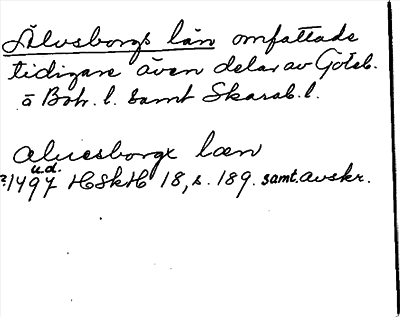 Älvsborgs län omfattade
tidigare även delar av Göteb.
o Boh. l. samt Skarab. l.
Aluesborgx læn
u.d.
?1497 HSkH 18, s. 189. samt. avskr.